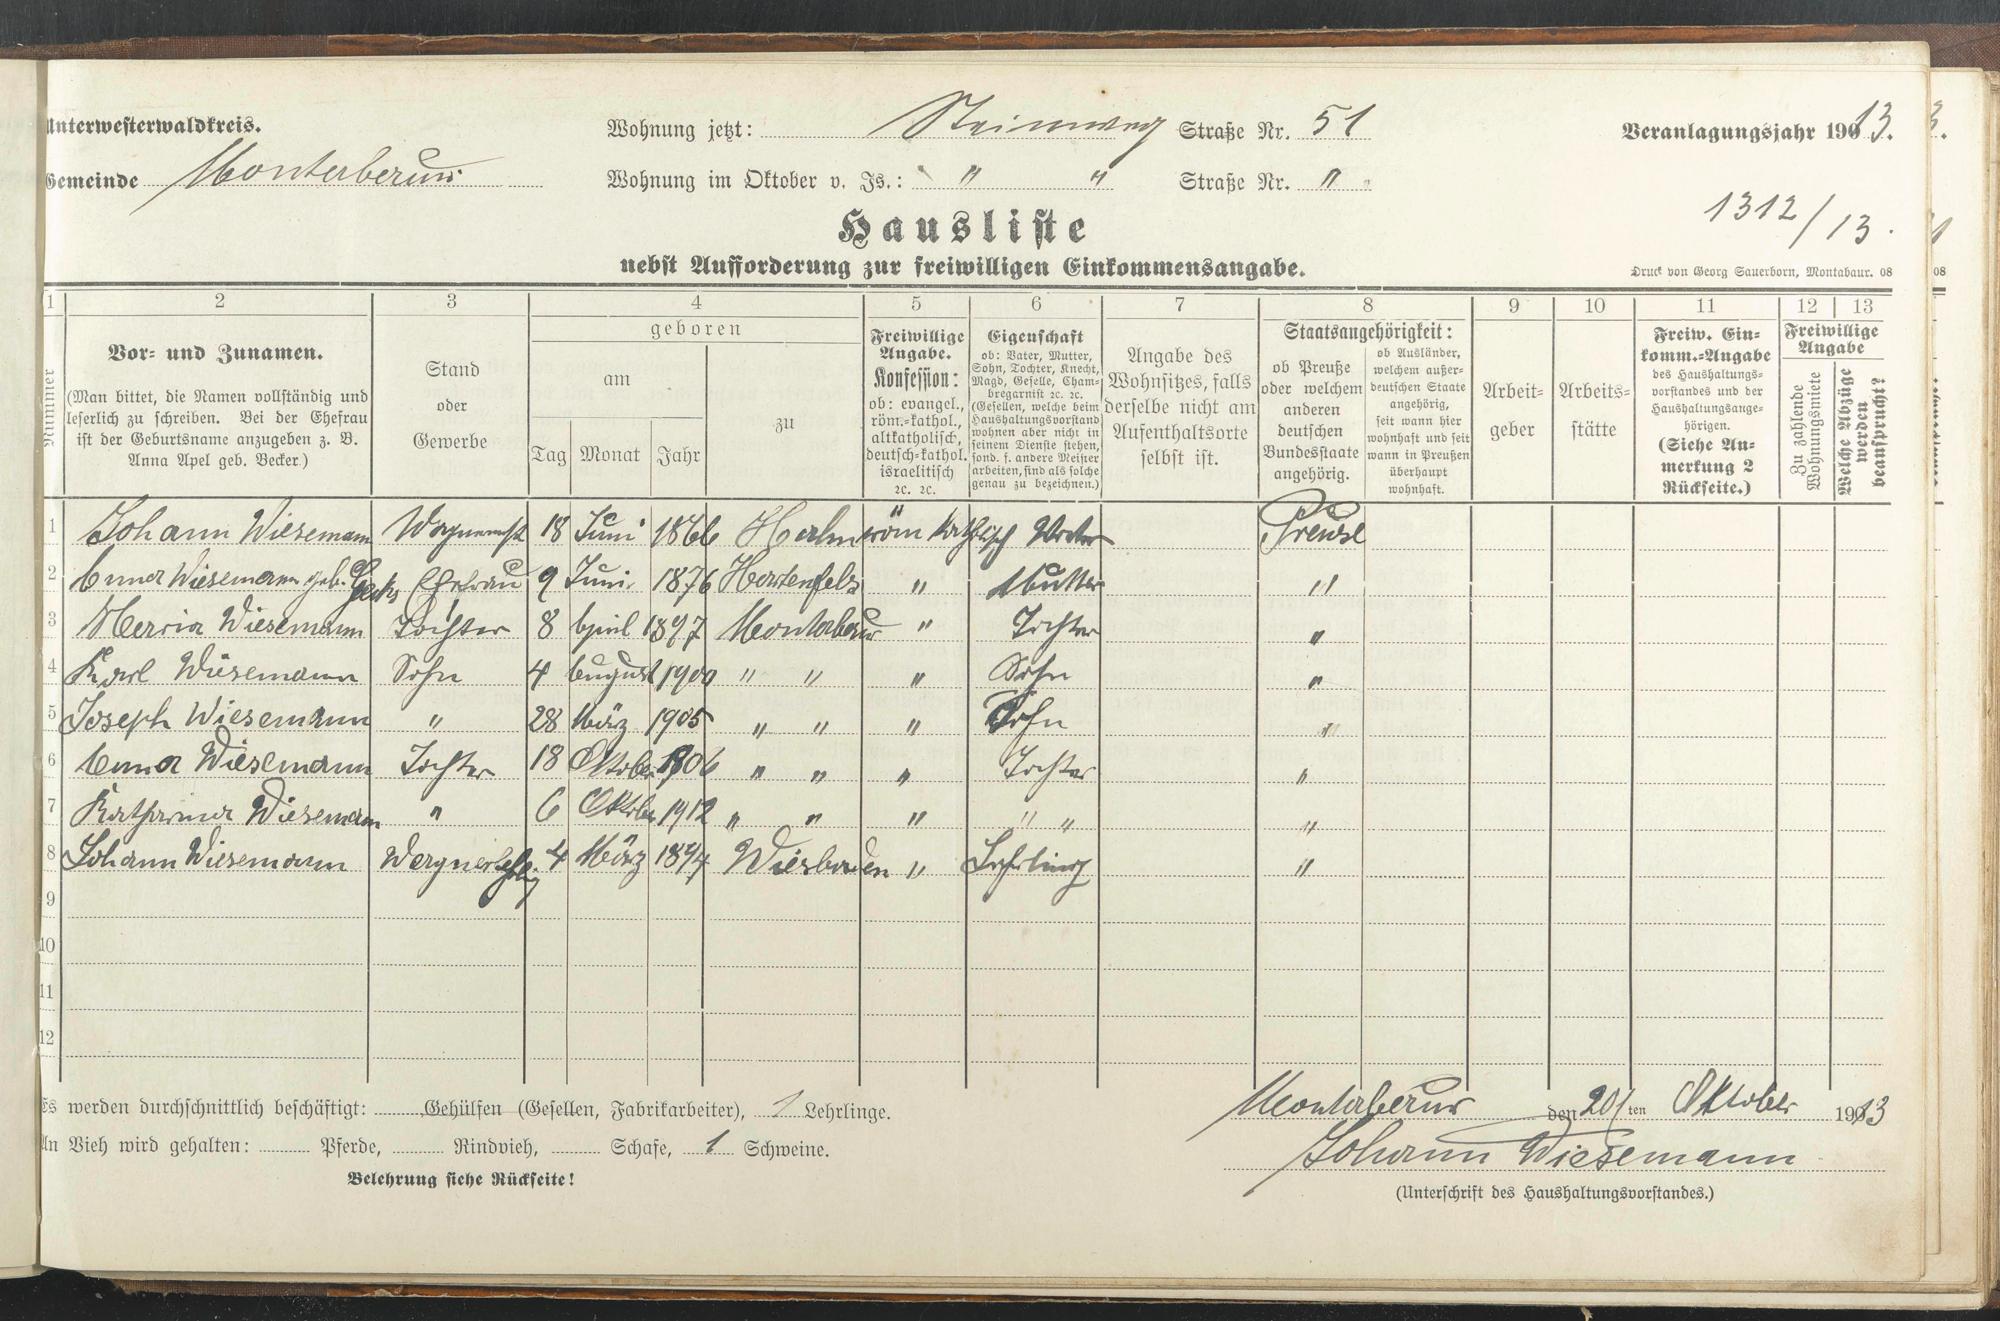 Unterwesterwaldkreis. Wohnung jetzt: Steinweg Straße Nr. 51 Veranlagungsjahr 1913.
Gemeinde Montabaur Wohnung im Oktober v. Js.: " " Straße Nr. "
1312/13.
Hausliste
nebst Aufforderung zur freiwilligen Einkommensangabe.
Druck von Georg Sauerborn, Montabaur. 08
1 2 3 4 5 6 7 8 9 10 11 12 13
Nummer
Vor- und Zunamen.
(Man bittet, die Namen vollständig und
leserlich zu schreiben. Bei der Ehefrau
ist der Geburtsname anzugeben z. B.
Anna Apel geb. Becker.)
Stand
oder
Gewerbe
geboren
am
Tag Monat Jahr
zu
Freiwillige
Angabe.
Konfession:
ob: evangel.,
röm.-kathol.,
altkatholisch,
deutsch-kathol.
israelitisch
ꝛc. ꝛc.
Eigenschaft
ob: Vater, Mutter,
Sohn, Tochter, Knecht,
Magd, Geselle, Cham-
bregarnist ꝛc. ꝛc.
(Gesellen, welche beim
Haushaltungsvorstand
wohnen aber nicht in
seinem Dienste stehen,
sond. f. andere Meister
arbeiten, sind als solche
genau zu bezeichnen.)
Angabe des
Wohnsitzes, falls
derselbe nicht am
Aufenthaltsorte
selbst ist.
Staatsangehörigkeit:
ob Preuße
oder welchem
anderen
deutschen
Bundesstaate
angehörig.
ob Ausländer,
welchem außer-
deutschen Staate
angehörig,
seit wann hier
wohnhaft und seit
wann in Preußen
überhaupt
wohnhaft.
Arbeit-
geber
Arbeits-
stätte
Freiw. Ein-
komm.-Angabe
des Haushaltungs-
vorstandes und der
Haushaltungsange-
hörigen.
(Siehe An-
merkung 2
Rückseite.)
Freiwillige
Angabe
Zu zahlende
Wohnungsmiete
Welche Abzüge
werden
beansprucht?
1 Johann Wiesemann 18 Juni 1866 röm katholisch Vater Preuße
2 Anna Wiesemann geb. Ehefrau 9 Juni 1876 Hartenfels " Mutter "
3 Maria Wiesemann Tochter 8 April 1897 Montabaur " Tochter "
4 Karl Wiesemann Sohn 4 August 1900 " " " Sohn "
5 Joseph Wiesemann " 28 März 1905 " " " Sohn "
6 Anna Wiesemann Tochter 18 Oktober 1906 " " " Tochter "
7 Katharina Wiesemann " 6 Oktober 1912 " " " " " "
8 Johann Wiesemann Wagnerlehrling 4 März Wiesbaden " Lehrling "
9
10
11
12
Es werden durchschnittlich beschäftigt: Gehülfen (Gesellen, Fabrikarbeiter), 1 Lehrlinge.
An Vieh wird gehalten: Pferde, Rindvieh, Schafe, 1 Schweine.
Belehrung siehe Rückseite!
Montabaur den 20ten Oktober 1913
Johann Wiesemann
(Unterschrift des Haushaltungsvorstandes.)